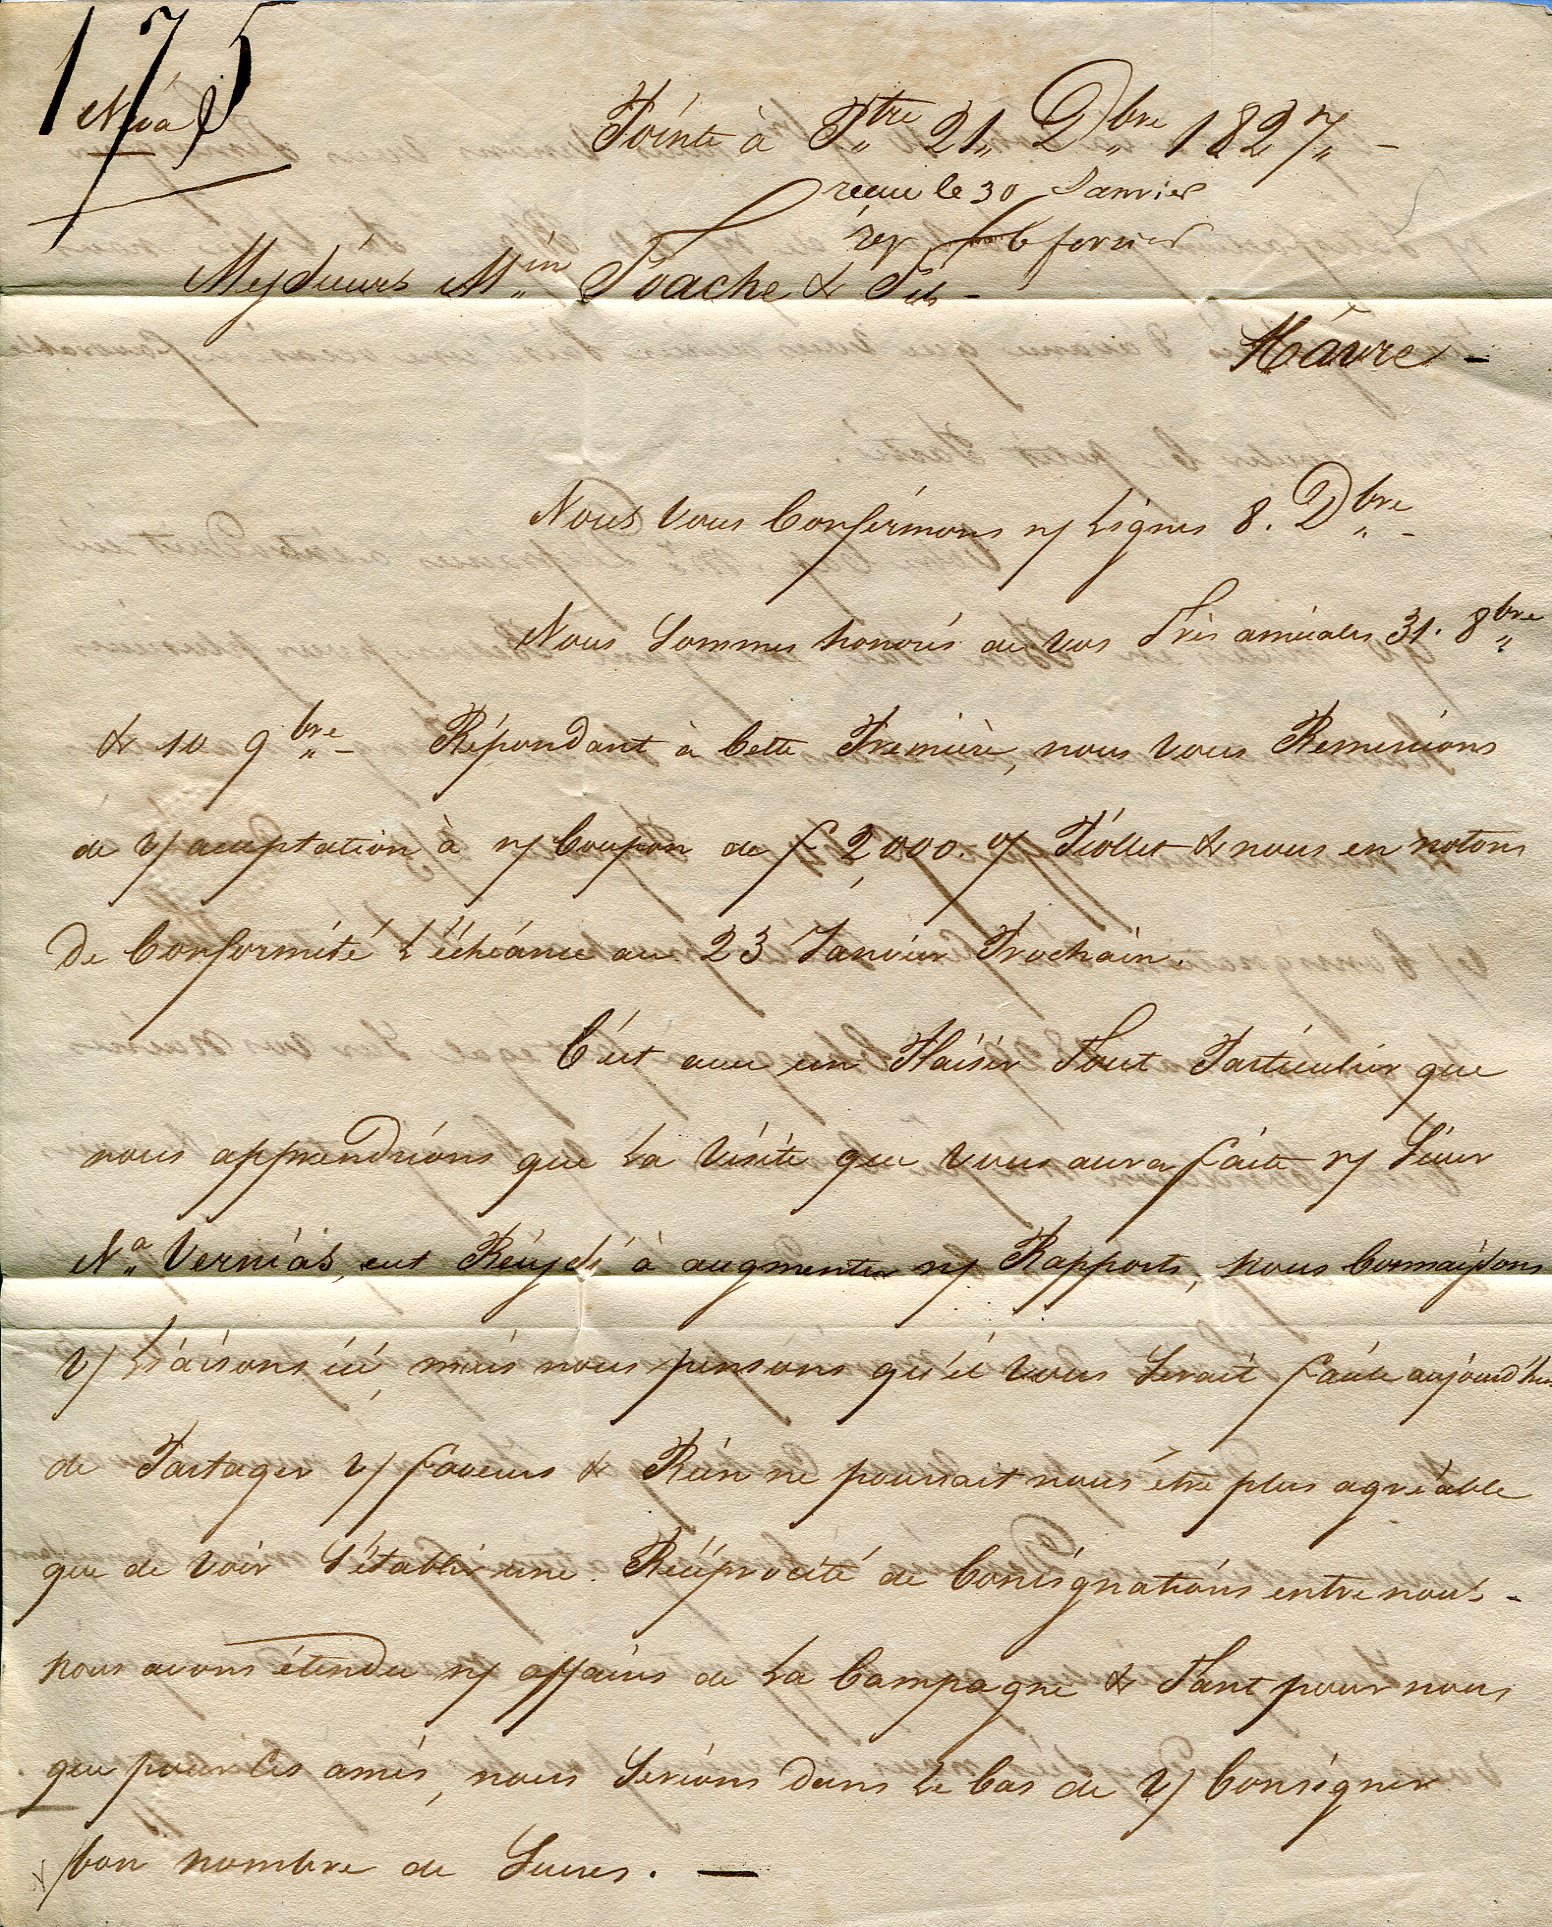 175
Pointe à P.tre 21, Dbre 1827 -
recue le 30 Janvier
rep le 6 fevrier
Messieurs M.in Foache & Fils -
Hâvre -
Nous vous Confirmons n/ Lignes 8. Dbre -
Nous Sommes honorés de vos Très amicales 31. 8bre
& 10 9bre - Répondant à Cette Première, nous vous Remercions
de v/ acceptation à n/ Coupon de f 2,000. o/ Piollet & nous en notons
De Conformité L'échéance au 23 Janvier Prochain.
C'est avec un Plaisir Tout Particulier que
nous apprendrions que La visite que vous aura faite n/ Sieur
N.a Vernias, eut Réussi à augmenter n/ Rapports, nous Connaissons
v/ Liaisons ici, mais nous pensons qu'il vous Serait facile aujourd'hui
de Partager v/ faveurs & Rien ne pourrait nous être plus agréable
que de voir S'établir une Réciprocité de Consignations entre nous -
nous avons étendu n/ affaires de La Campagne & Tant pour nous
que pour Les amis, nous Serions dans Le Cas de v/ Consigner
bon nombre de Sucres. —